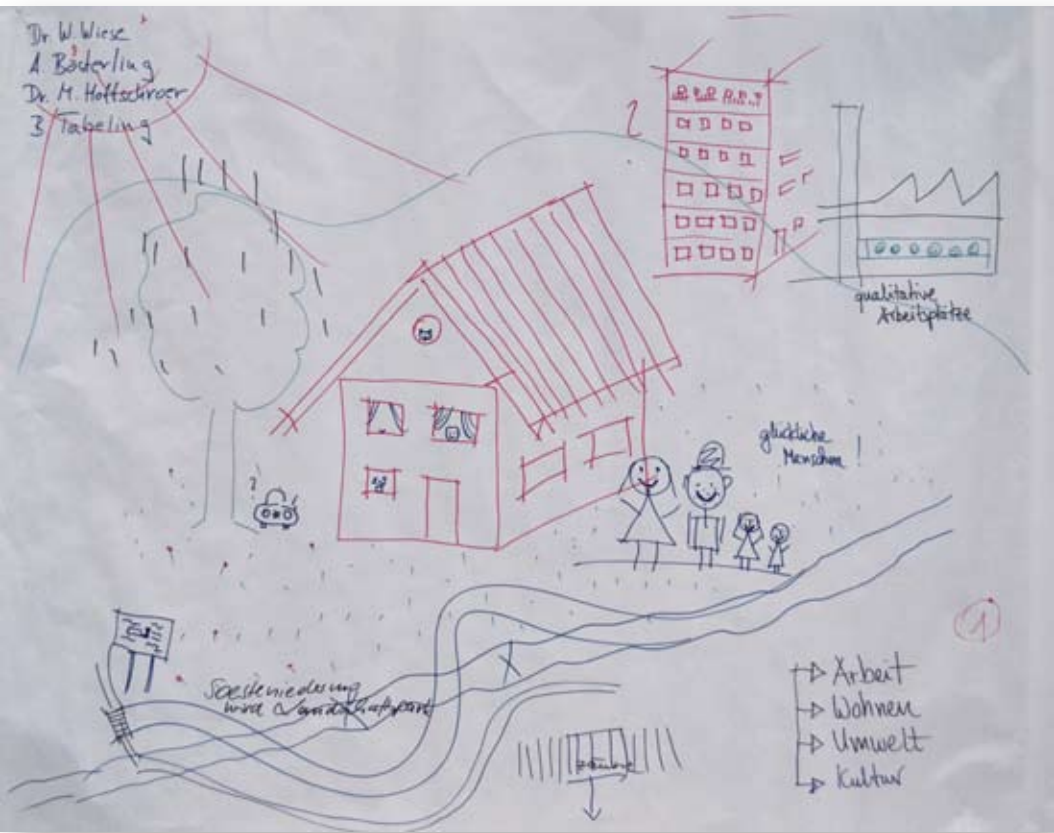 Dr. W. Wiese
A. Bäterling
Dr. M. Hoffschroer
B Tabeling
qualitative
Arbeitsplätze
glückliche
Menschen!
Soesteniederung
wird Landschaftspark
Arbeit
Wohnen
Umwelt
Kultur
1